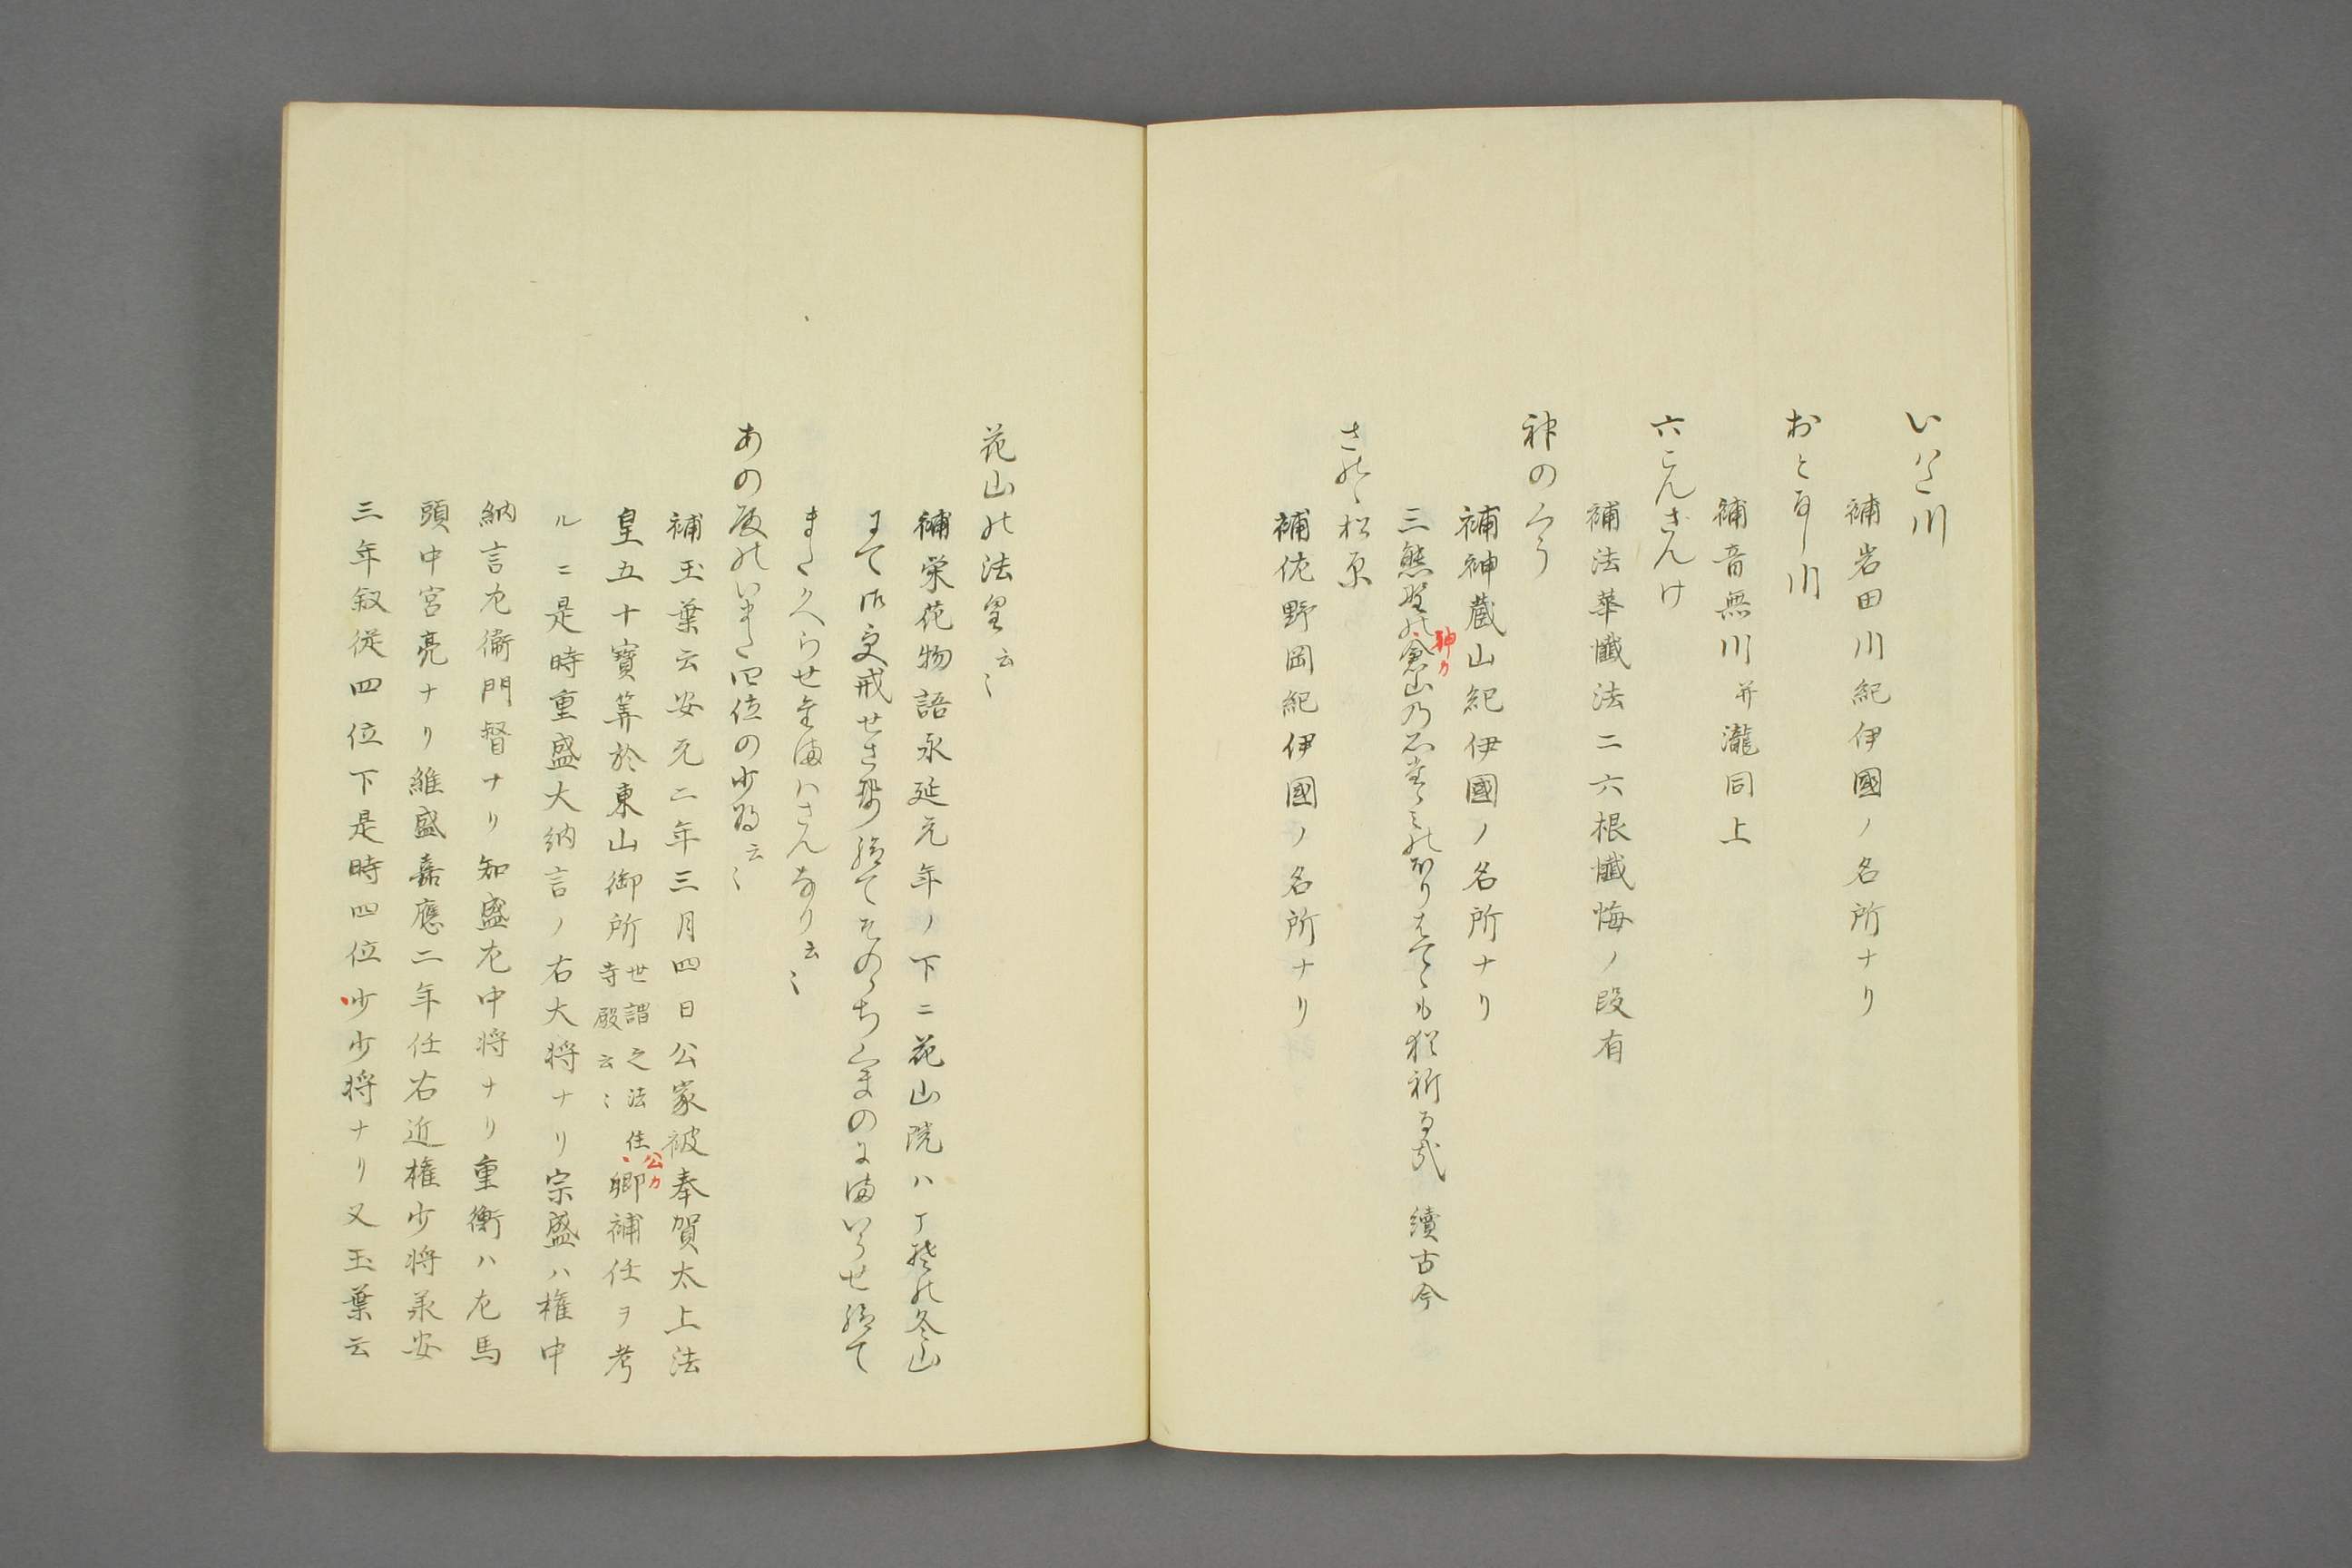 いはた川
補岩田川紀伊國ノ名所ナリ
おとなし川
補音無川并瀧同上
六こんさんけ
補法華懺法ニ六根懺悔ノ段有
神のくら
補神蔵山紀伊國ノ名所ナリ
三熊野の倉山の石たゝみのほりはてゝも猶祈る哉 續古今
神カ
さのゝ松原
補佐野岡紀伊國ノ名所ナリ
花山の法皇云〻
補栄花物語永延元年ノ下ニ花山院ハ丁 その冬山
にて御受戒せさせ給てそのゝちくまのにまいらせ給て
またかへらせたまはさんなり云〻
あの殿のいまた四位の少将云〻
補玉葉云安元二年三月四日公家被奉賀太上法
皇五十寳筭於東山御所世謂之法住寺殿云〻卿補任ヲ考
公カ
ルニ是時重盛大納言ノ右大将ナリ宗盛ハ権中
納言左衞門督ナリ知盛左中将ナリ重衡ハ左馬
頭中宮亮ナリ維盛嘉應二年任右近権少将承安
三年叙従四位下是時四位少少将ナリ又玉葉云